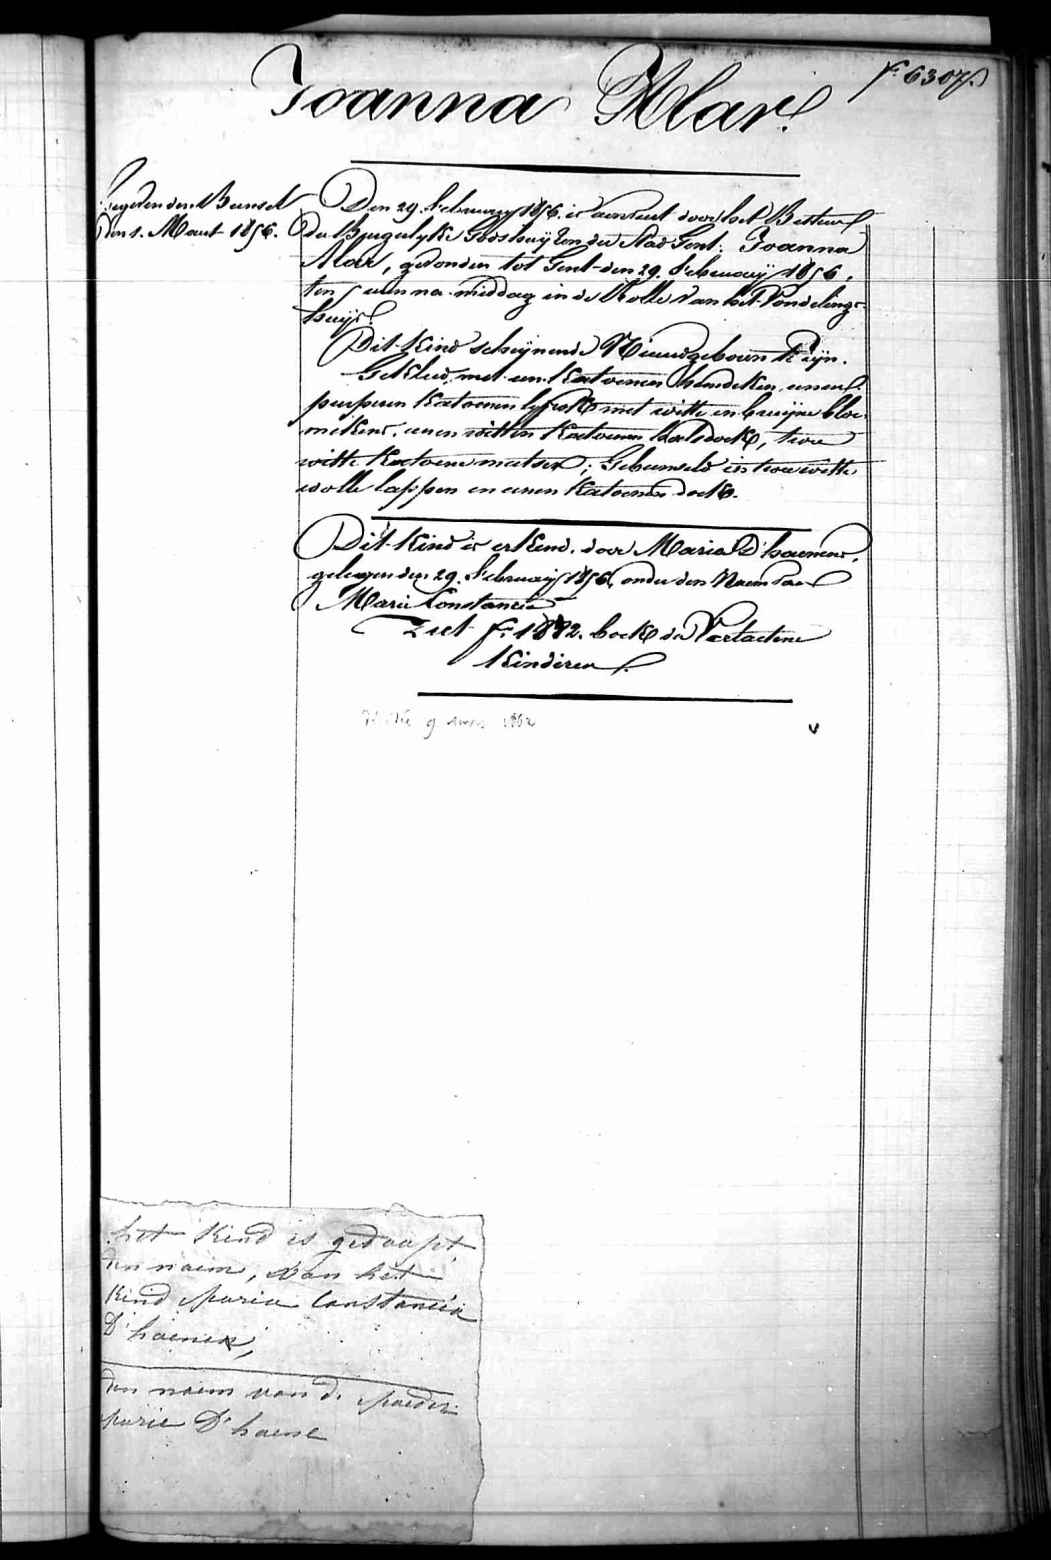 fº 6307.
Joanna Mar.
Ingeden den Bunsel
den 1. Maert 1856.
Den 29. February 1856 is aenveird door het Bestier
der Burgerlyke Godshuyzen der Stad Gent: Joanna
Mar, gevonden tot Gent den 29. February 1856,
ten 5 uren na-middag in de Rolle van het Vondelings-
huys.
Dit Kind schynende Nieuwgeboren te zyn.
Gekleed met een Katoenen hemdeken, eenen
purperen Katoenen lyfrok met witte en bruyne bloe-
mekens, eenen witten Katoenen halsdoek, twee
witte Katoene mutsen; Gebunseld in twee witte
wolle lappen en eenen Katoenen doek.
Dit Kind is erkend door Maria D'haenens,
gelegen den 29. February 1856, onder den Naem van
Marie Constancia
Ziet fº 1882. boek der Verlaetene
Kinderen.
9 1862
het Kind is gedoopt
den naem, van het
Kind Maria Constancia
D'haenen,
den naem van de Moeder
Marie D'haene